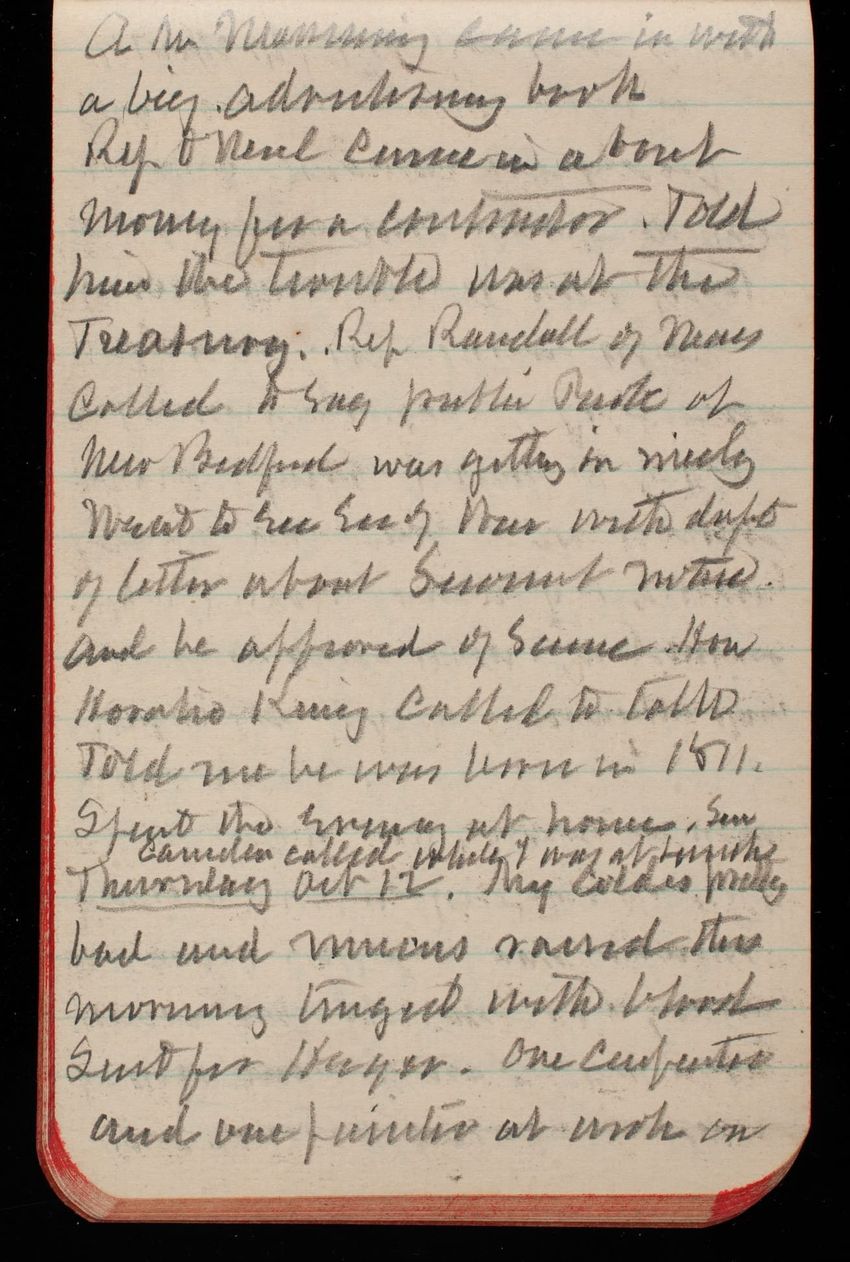 A M Manning came in with
a big advertising book
Rep O Neal came in about
money for a contractor. Told
him the trouble was at the
Treasury. Rep Randall of Mass
called to say public Park at
New Bedford was getting on nicely
Went to see Sec of War with dft
of letter about Seconnet matter.
and he approved of same. Hon
Horatio King called to talk
Told me he was born in 1811.
Spent the evening at home. Sen
Camden called while I was at lunch
Thursday Oct 12. My cold is pretty
bad and mucus raised this
morning tinged with blood
Sent for Hagar. One carpenter
and one painter at work on